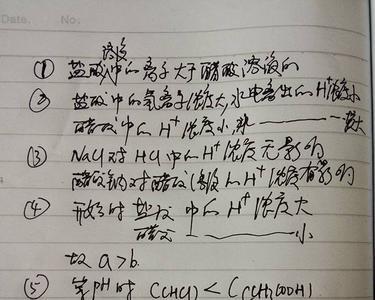 Date. No.
① 盐酸溶液中的离子大于醋酸溶液的
② 盐酸中的氢离子浓度大,水电离出的H⁺浓度小
醋酸中的H⁺浓度小, ———— 大
③ NaCl对HCl中的H⁺浓度无影响
醋酸钠对醋酸溶液的H⁺浓度有影响
④ 开始时盐酸中的H⁺浓度大
醋酸 ———— 小
故 a>b
⑤ 等pH时 C(HCl) < C(CH₃COOH)